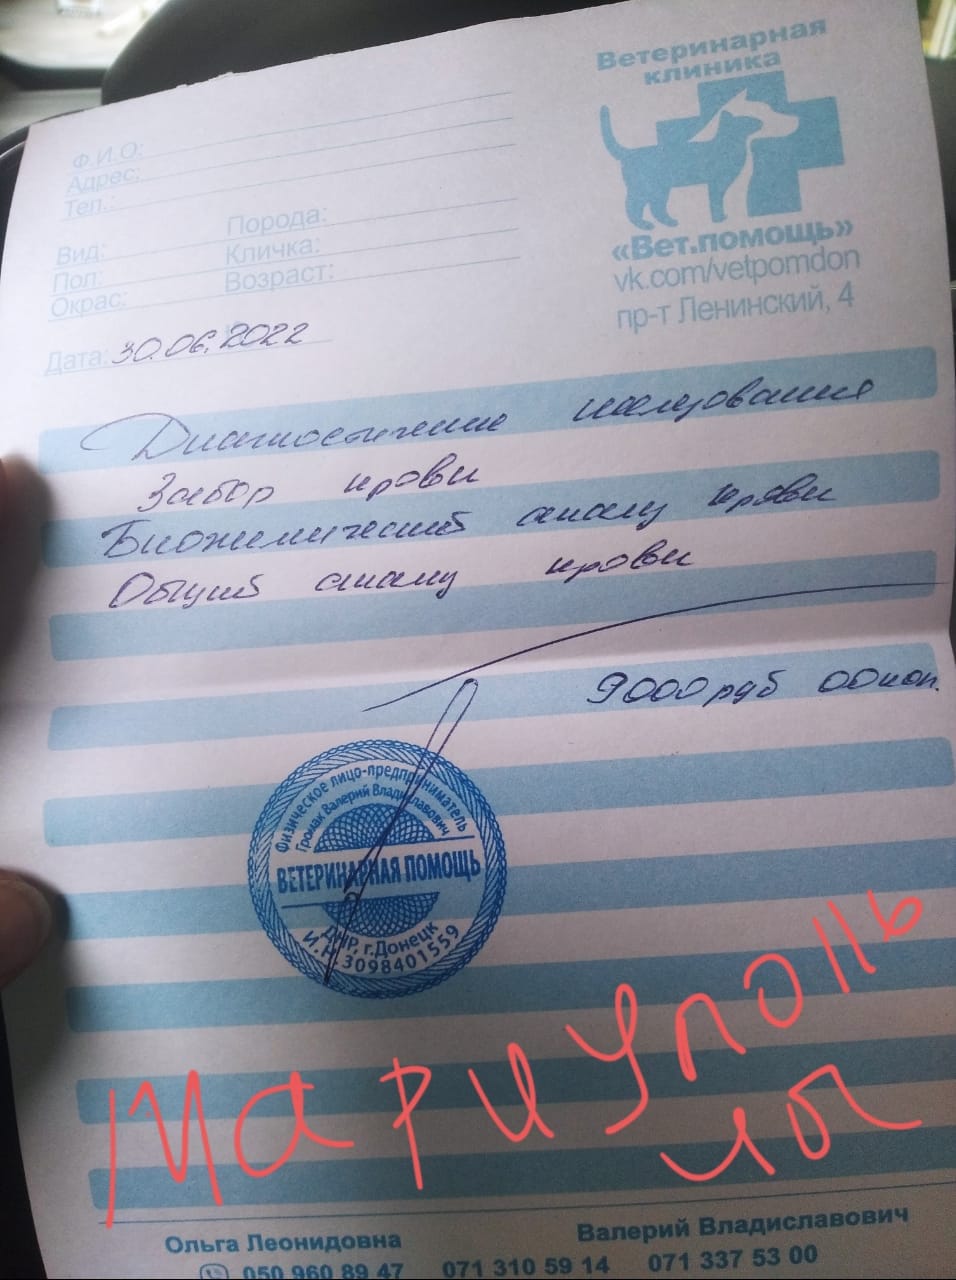 Ветеринарная
клиника
«Вет.помощь»
vk.com/vetpomdon
пр-т Ленинский, 4
Ф.И.О:
Адрес:
Тел.:
Вид: Порода:
Пол: Кличка:
Окрас: Возраст:
Дата: 30.06.2022
Диагностические исследования
Забор крови
Биохимический анализ крови
Общий анализ крови
9000 руб 00 коп.
Физическое лицо-предприниматель
Громак Валерий Владиславович
ВЕТЕРИНАРНАЯ ПОМОЩЬ
ДНР, г.Донецк
И.Н.3098401559
Мариуполь
Ольга Леонидовна Валерий Владиславович
050 960 89 47 071 310 59 14 071 337 53 00